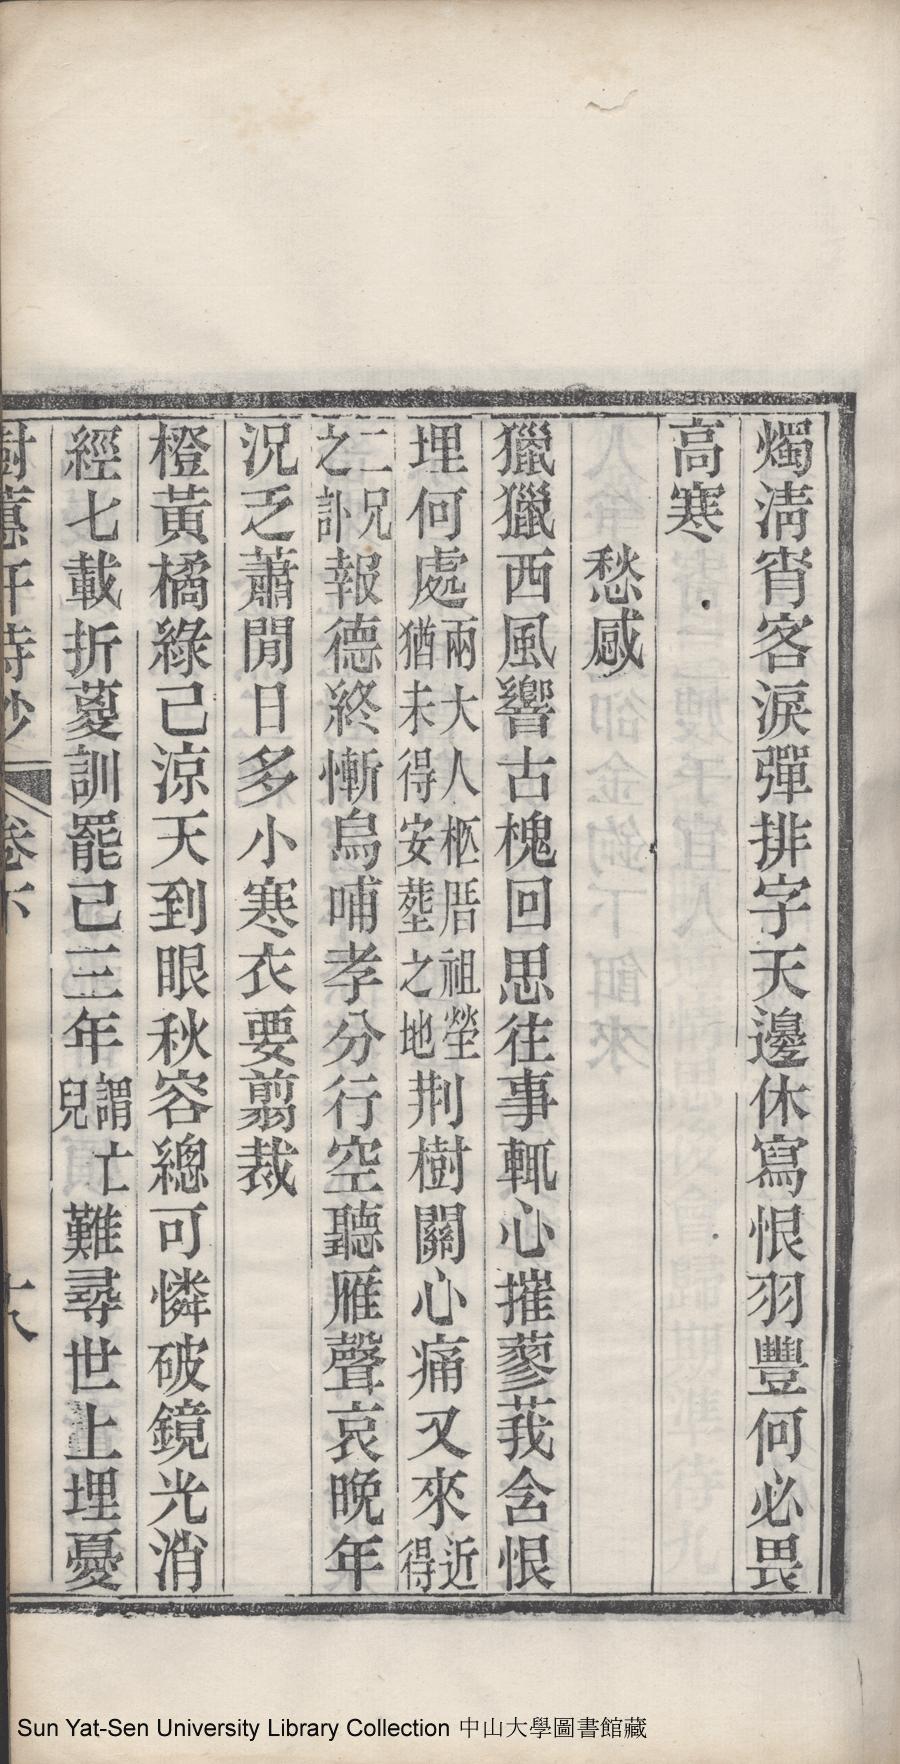 燭淸宵客淚彈排字天邊休寫恨羽豐何必畏
高寒
愁感
獵獵西風響古槐回思往事輒心摧蓼莪含恨
埋何處兩大人柩厝祖塋猶未得安塟之地荆樹關心痛又來近得
二兄之訃報德終慚烏哺孝分行空聽雁聲哀晚年
況乏蕭閒日多小寒衣要翦裁
橙黃橘綠已涼天到眼秋容總可憐破鏡光消
經七載折葼訓罷已三年謂亡兒難尋世上埋憂
樹蕙軒詩鈔 卷下 十八
Sun Yat-Sen University Library Collection 中山大學圖書館藏